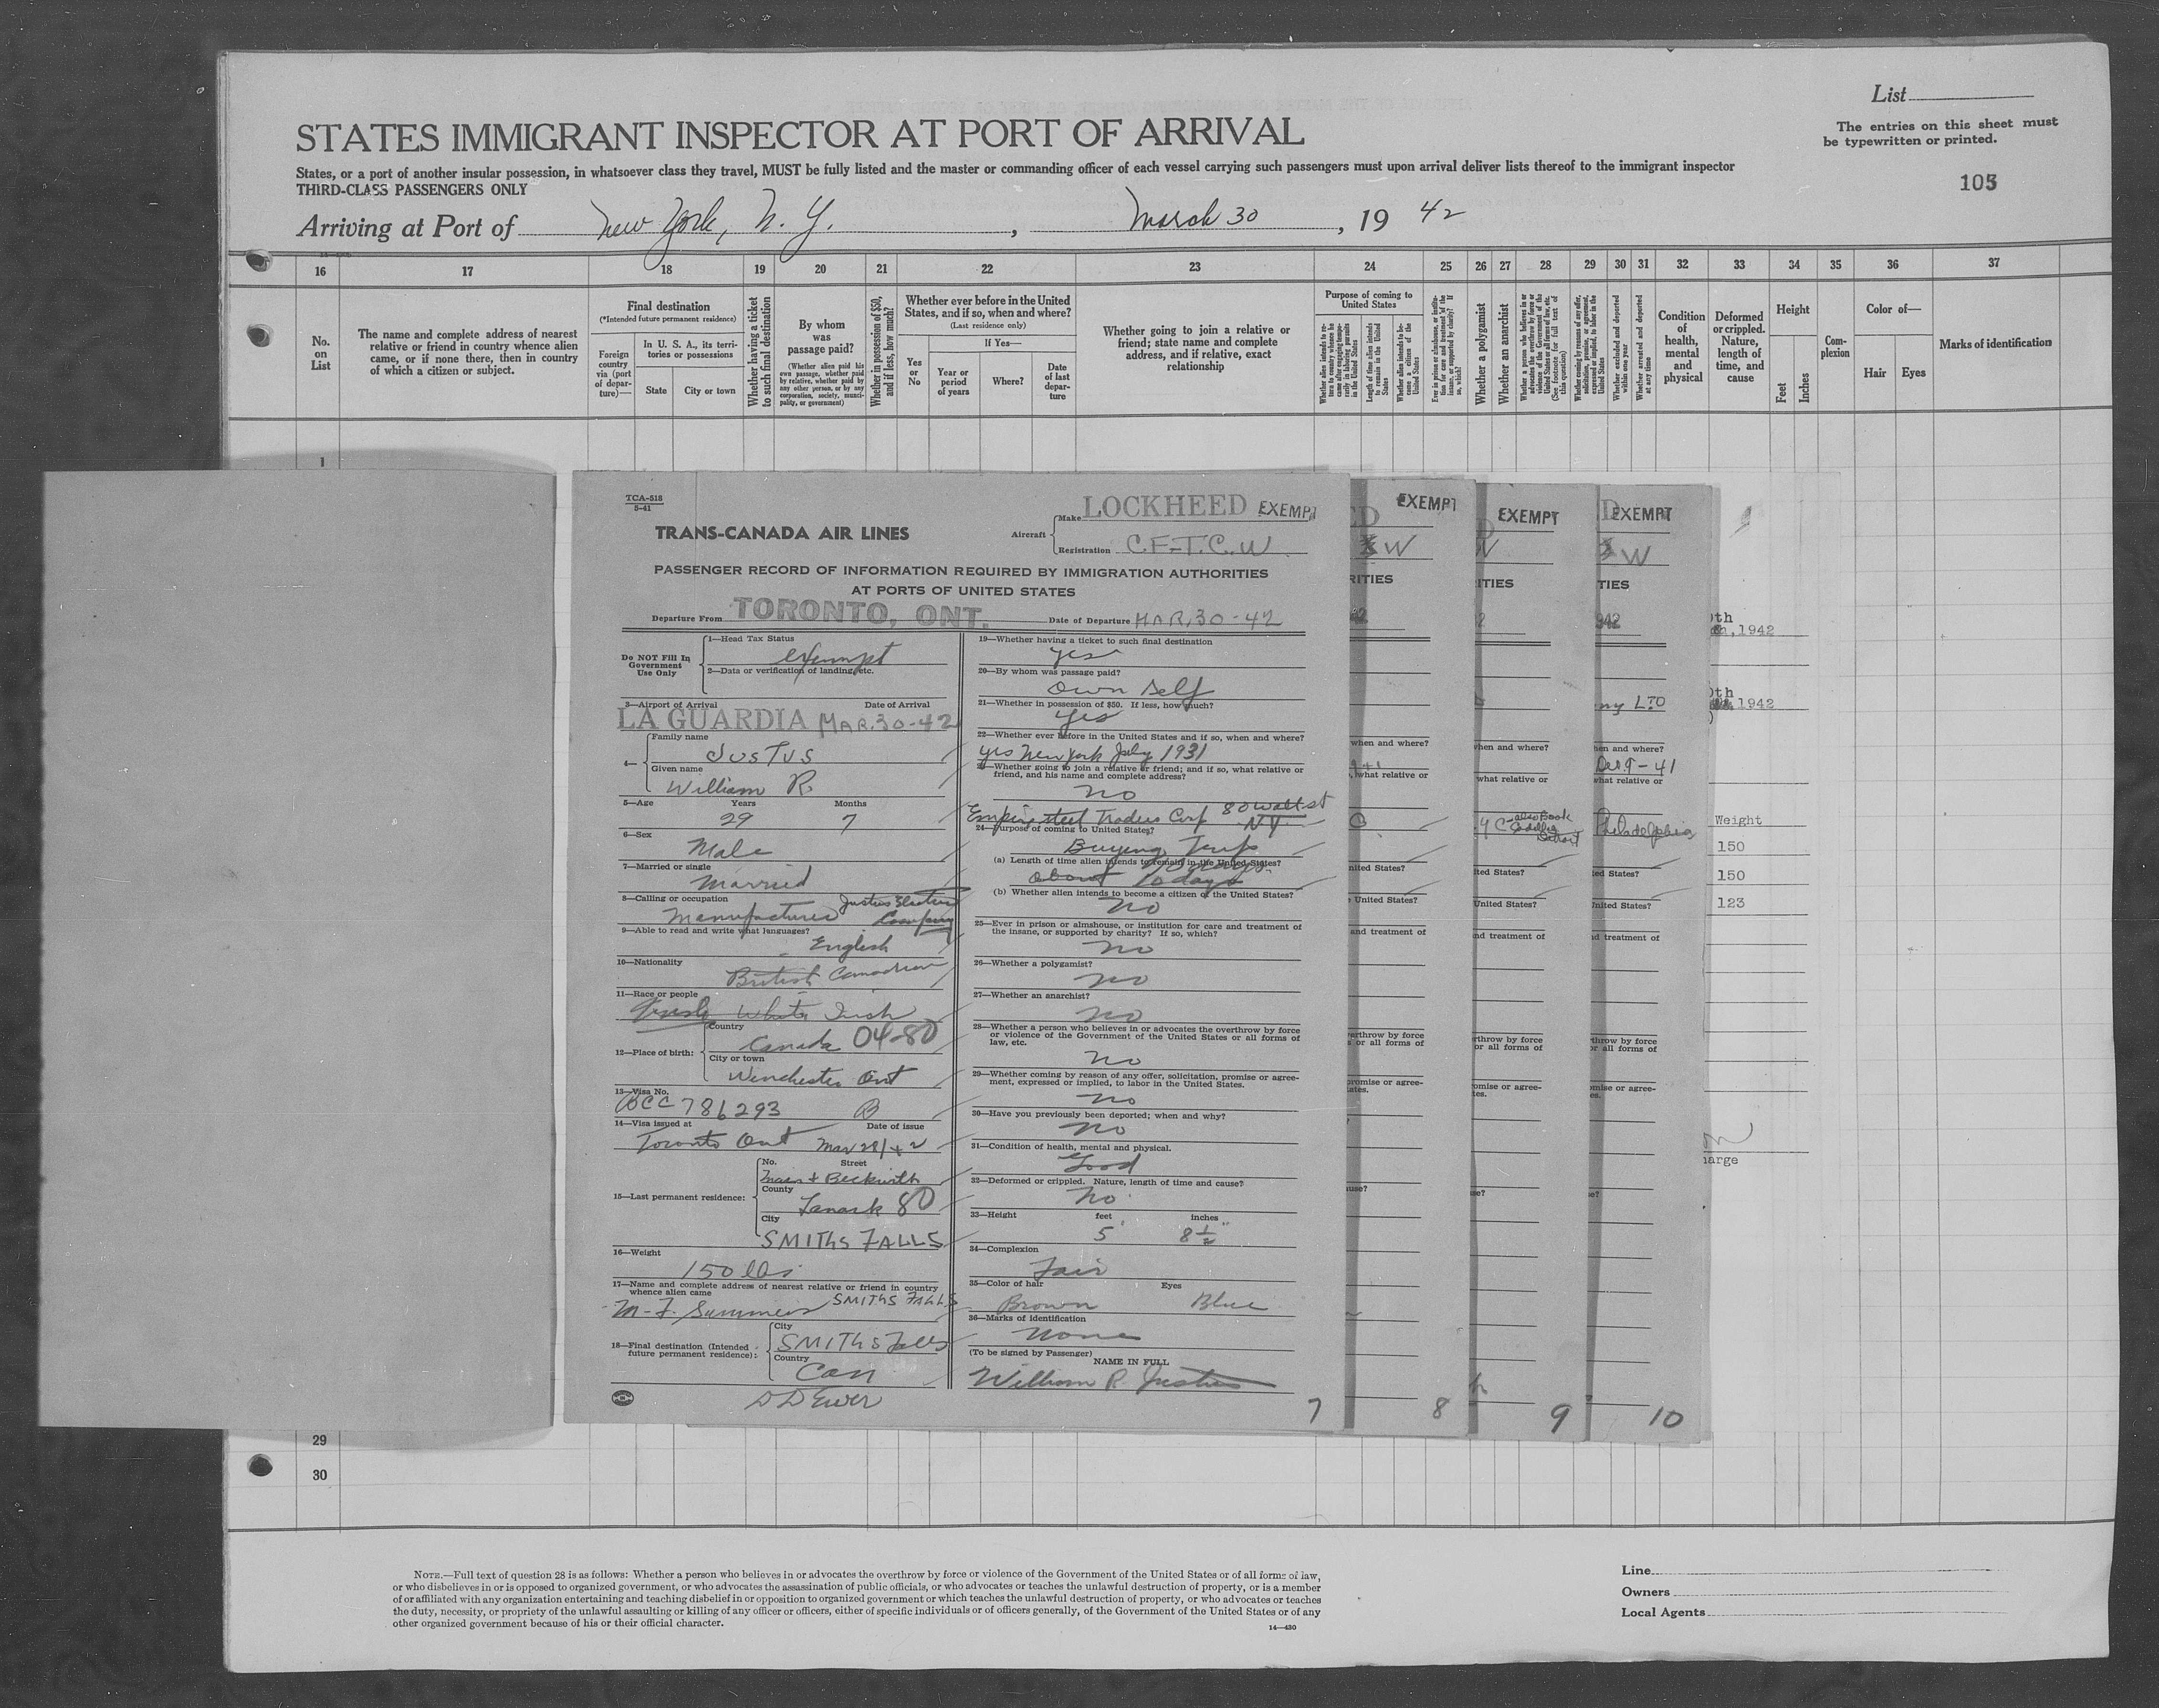 List
STATES IMMIGRANT INSPECTOR AT PORT OF ARRIVAL
The entries on this sheet must
be typewritten or printed.
States, or a port of another insular possession, in whatsoever class they travel, MUST be fully listed and the master or commanding officer of each vessel carrying such passengers must upon arrival deliver lists thereof to the immigrant inspector
THIRD-CLASS PASSENGERS ONLY
105
Arriving at Port of New York, N. Y., March 30, 19 42
16 17 18 19 20 21 22 23 24 25 26 27 28 29 30 31 32 33 34 35 36 37
No.
on
List
The name and complete address of nearest
relative or friend in country whence alien
came, or if none there, then in country
of which a citizen or subject.
Final destination
(*Intended future permanent residence)
Foreign
country
via (port
of depar-
ture)—
In U. S. A., its terri-
tories or possessions
State
City or town
Whether having a ticket
to such final destination
By whom
was
passage paid?
(Whether alien paid his
own passage, whether paid
by relative, whether paid by
any other person, or by any
corporation, society, munici-
pality, or government)
Whether in possession of $50,
and if less, how much?
Whether ever before in the United
States, and if so, when and where?
(Last residence only)
Yes
or
No
If Yes—
Year or
period
of years
Where?
Date
of last
depar-
ture
Whether going to join a relative or
friend; state name and complete
address, and if relative, exact
relationship
Purpose of coming to
United States
Length of time alien intends
to remain in the United
States
Whether alien intends to be-
come a citizen of the
United States
Whether a polygamist
Whether an anarchist
Whether excluded and deported
within one year
Whether arrested and deported
at any time
Condition
of
health,
mental
and
physical
Deformed
or crippled.
Nature,
length of
time, and
cause
Height
Feet
Inches
Com-
plexion
Color of—
Hair
Eyes
Marks of identification
1
TCA-518
5-41
TRANS-CANADA AIR LINES
Aircraft
Make LOCKHEED EXEMPT
Registration C.F-T.C.W
PASSENGER RECORD OF INFORMATION REQUIRED BY IMMIGRATION AUTHORITIES
AT PORTS OF UNITED STATES
Departure From TORONTO, ONT. Date of Departure MAR. 30-42
Do NOT Fill In
Government
Use Only
1—Head Tax Status
exempt
2—Data or verification of landing, etc.
3—Airport of Arrival Date of Arrival
LA GUARDIA MAR. 30-42
4—
Family name
JUSTUS
Given name
William R.
5—Age Years Months
29 7
6—Sex
Male
7—Married or single
Married
8—Calling or occupation
Manufacturer
Company
9—Able to read and write what languages?
English
10—Nationality
British Canadian
11—Race or people
Irish White Irish
12—Place of birth:
Country
Canada 04-80
City or town
Winchester Ont
13—Visa No.
BCC 786293 B
14—Visa issued at Date of issue
Toronto Ont Mar 28/42
15—Last permanent residence:
No. Street
Main + Beckwith
County
Lanark 80
City
SMITHS FALLS
16—Weight
150 lbs
17—Name and complete address of nearest relative or friend in country
whence alien came
M. F. Summers SMITHS FALLS
18—Final destination (Intended
future permanent residence):
City
SMITHS Falls
Country
Can
D D Ewer
19—Whether having a ticket to such final destination
yes
20—By whom was passage paid?
own self
21—Whether in possession of $50. If less, how much?
yes
22—Whether ever before in the United States and if so, when and where?
yes New York July 1931
23—Whether going to join a relative or friend; and if so, what relative or
friend, and his name and complete address?
no
Empire steel Traders Corp 80 Wall st
N.Y.
24—Purpose of coming to United States?
Buying Trip
(a) Length of time alien intends to remain in the United States?
about 10 days
(b) Whether alien intends to become a citizen of the United States?
no
25—Ever in prison or almshouse, or institution for care and treatment of
the insane, or supported by charity? If so, which?
no
26—Whether a polygamist?
no
27—Whether an anarchist?
no
28—Whether a person who believes in or advocates the overthrow by force
or violence of the Government of the United States or all forms of
law, etc.
no
29—Whether coming by reason of any offer, solicitation, promise or agree-
ment, expressed or implied, to labor in the United States.
no
30—Have you previously been deported; when and why?
no
31—Condition of health, mental and physical.
Good
32—Deformed or crippled. Nature, length of time and cause?
no
33—Height feet inches
5' 8 1/2"
34—Complexion
Fair
35—Color of hair Eyes
Brown Blue
36—Marks of identification
None
(To be signed by Passenger)
NAME IN FULL
William R. Justus
7
EXEMPT
W
RITIES
when and where?
what relative or
nited States?
United States?
and treatment of
erthrow by force
or all forms of
promise or agree-
ates.
ause?
8
EXEMPT
W
ITIES
hen and where?
what relative or
Detroit
ited States?
United States?
nd treatment of
rthrow by force
or all forms of
omise or agree-
tes.
se?
9
EXEMPT
W
TIES
942
ny LTD
en and where?
Dec 9-41
what relative or
Philadelphia
ed States?
nited States?
d treatment of
throw by force
or all forms of
mise or agree-
es.
e?
10
0th
1942
0th
1942
Weight
150
150
123
harge
29
30
NOTE.—Full text of question 28 is as follows: Whether a person who believes in or advocates the overthrow by force or violence of the Government of the United States or of all forms of law,
or who disbelieves in or is opposed to organized government, or who advocates the assassination of public officials, or who advocates or teaches the unlawful destruction of property, or is a member
of or affiliated with any organization entertaining and teaching disbelief in or opposition to organized government or which teaches the unlawful destruction of property, or who advocates or teaches
the duty, necessity, or propriety of the unlawful assaulting or killing of any officer or officers, either of specific individuals or of officers generally, of the Government of the United States or of any
other organized government because of his or their official character.
14—430
Line
Owners
Local Agents